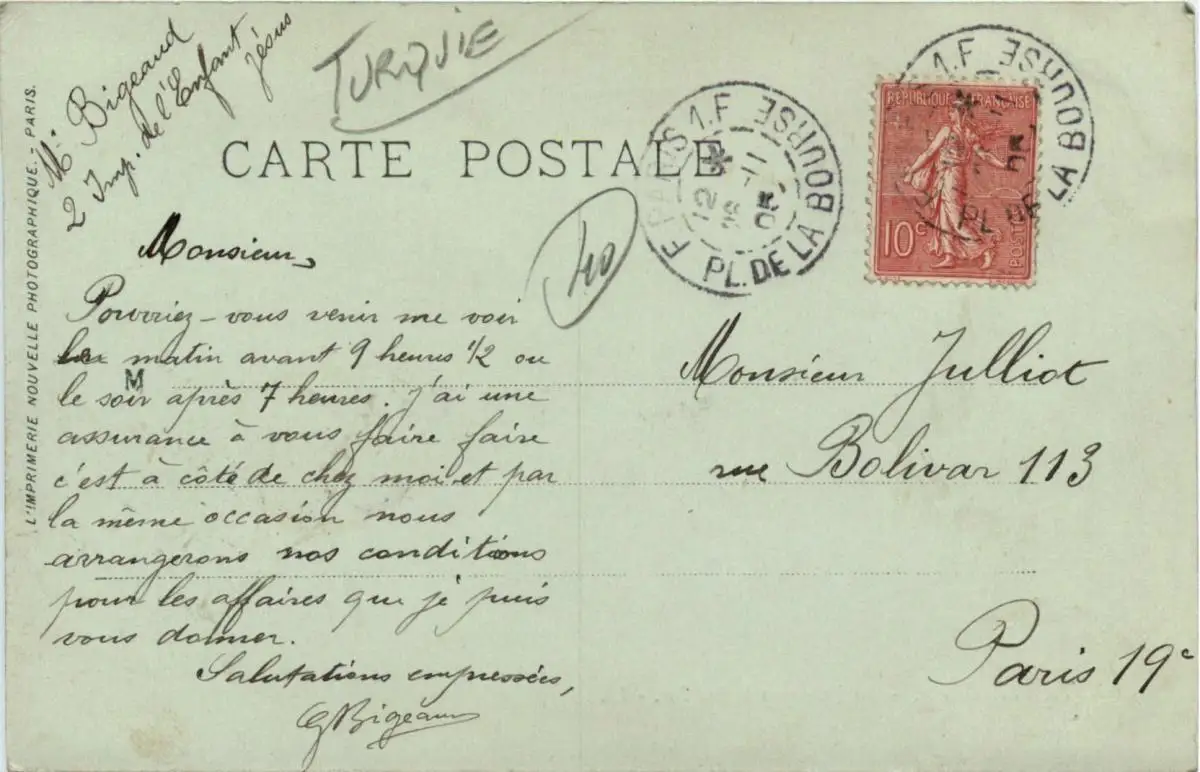 Mr Bigeaud
2 Imp. de l'Enfant
Jésus
TURQUIE
CARTE POSTALE
L'IMPRIMERIE NOUVELLE PHOTOGRAPHIQUE. - PARIS.
PARIS 1.F BOURSE
12 * 11
05
PL. DE LA BOURSE
1.F BOURSE
05
PL. DE LA
RÉPUBLIQUE FRANÇAISE
10c
POSTES
Monsieur,
Pourriez-vous venir me voir
le matin avant 9 heures 1/2 ou
M
le soir après 7 heures. J'ai une
assurance à vous faire faire
c'est à côté de chez moi et par
la même occasion nous
arrangerons nos conditions
pour les affaires que je puis
vous donner.
Salutations empressées,
G Bigeaud
Monsieur Julliot
rue Bolivar 113
Paris 19e